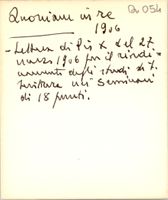 Qv 054
Quoniam in re
1906
- Lettera di Pio X del 27
marzo 1906 per il riordi-
namento degli studi di S.
Scrittura nei Seminari
di 18 punti.